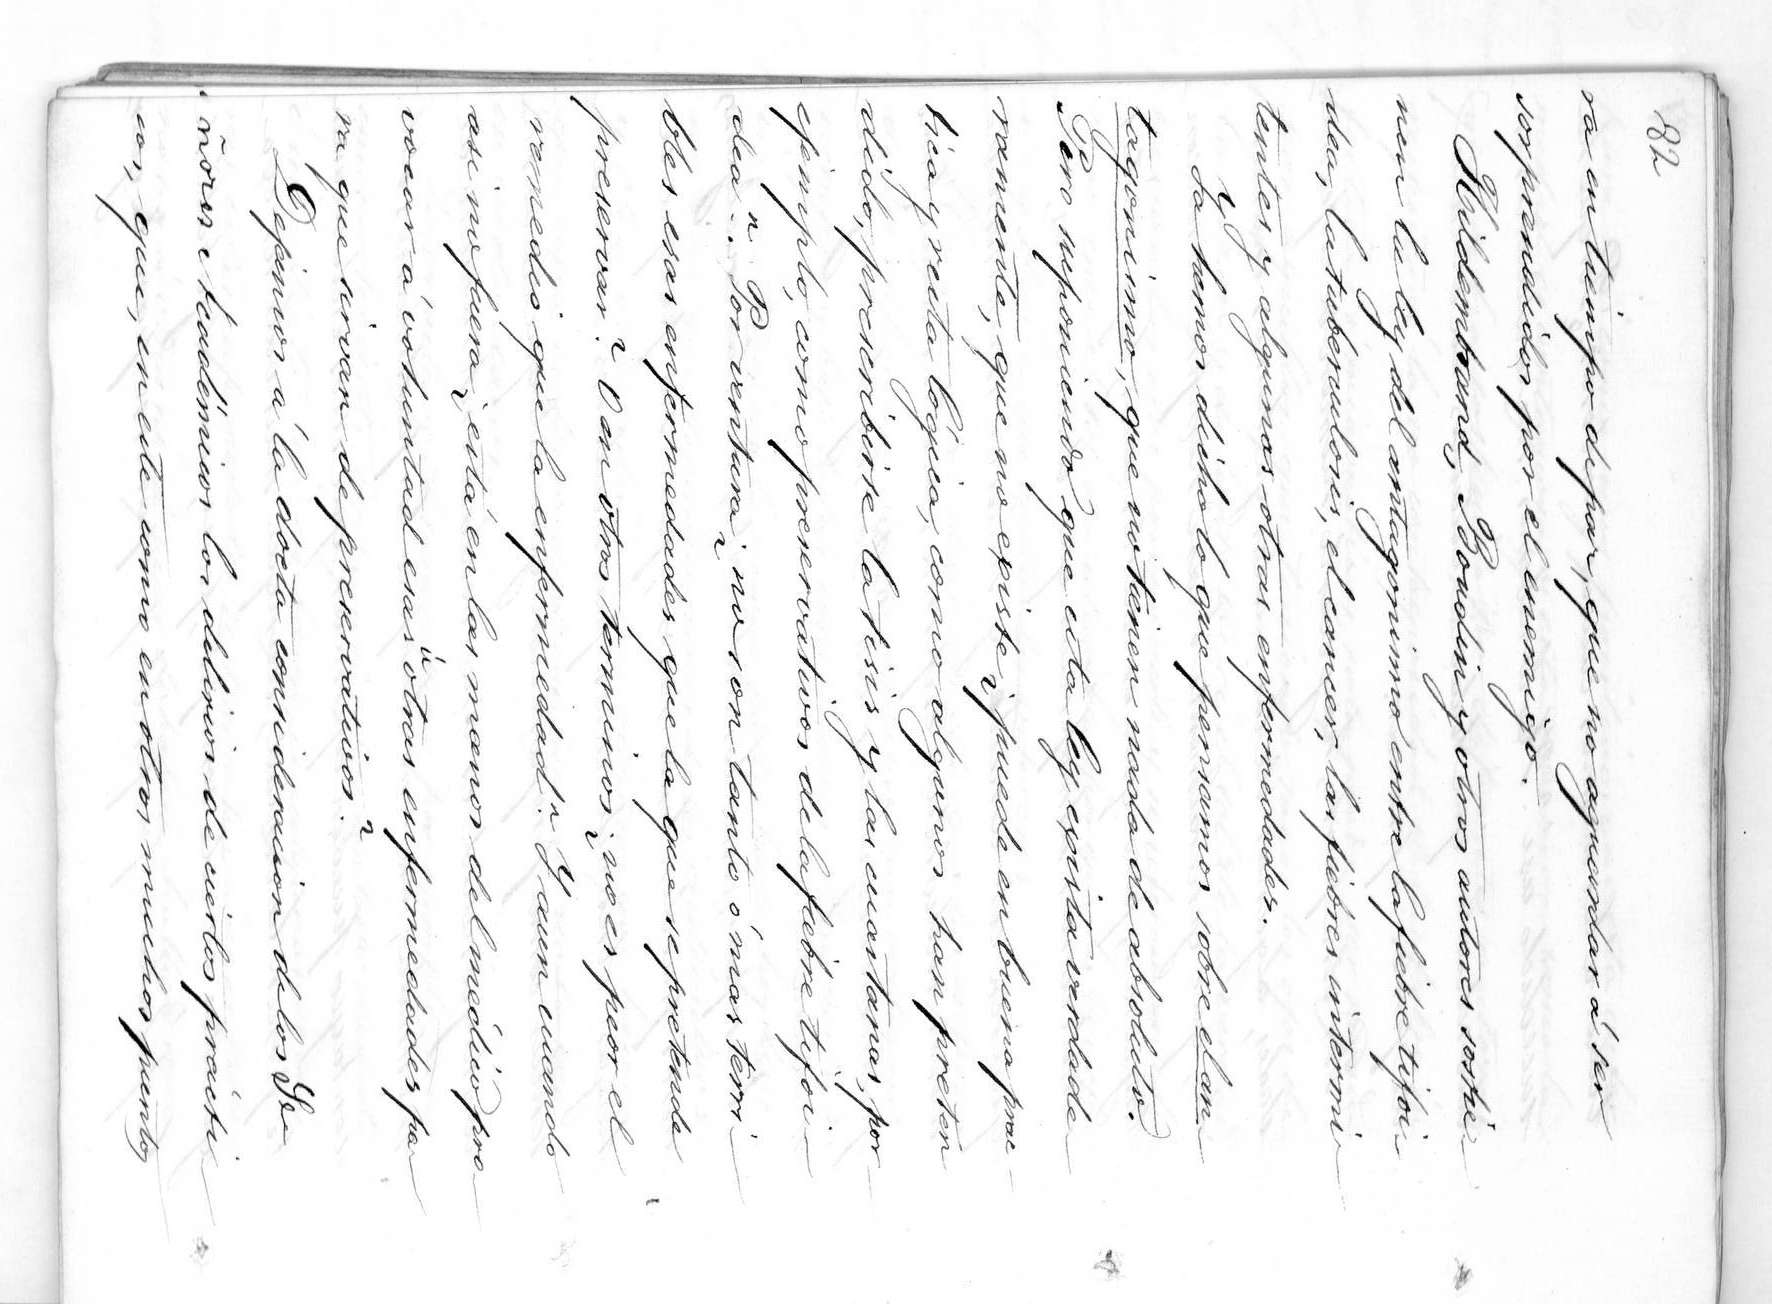 82
ra en tiempo de paz, que no aguardar á ser
sorprendidos por el enemigo.
Hildembrand, Boudin y otros autores sostie
nen la ley del antagonismo entre la fiebre tifoi
dea, la tuberculosis, el cancer, las fiebres intermi
tentes y algunas otras enfermedades.
Ya hemos dicho lo que pensamos sobre el an
tagonismo, que no tienen nada de absoluto.
Pero suponiendo que esta ley exista verdade
ramente, que no existe ¿puede en buena prac-
tica y recta lógica, como algunos han preten
dido, prescribirse la tisis y las cuartanas, por
ejemplo, como preservativos de la fiebre tifoi
dea? Por ventura ¿no son tanto ó mas terri
bles esas enfermedades que la que se pretende
preservar? O en otros terminos ¿no es peor el
remedio que la enfermedad? Y aun cuando
asi no fuera ¿está en las manos del médico pro
vocar á voluntad esas ú otras enfermedades pa
ra que sirvan de preservativos?
Dejemos á la docta consideracion de los Se
ñores Academicos los delirios de ciertos prácti
cos, que, en este como en otros muchos puntos